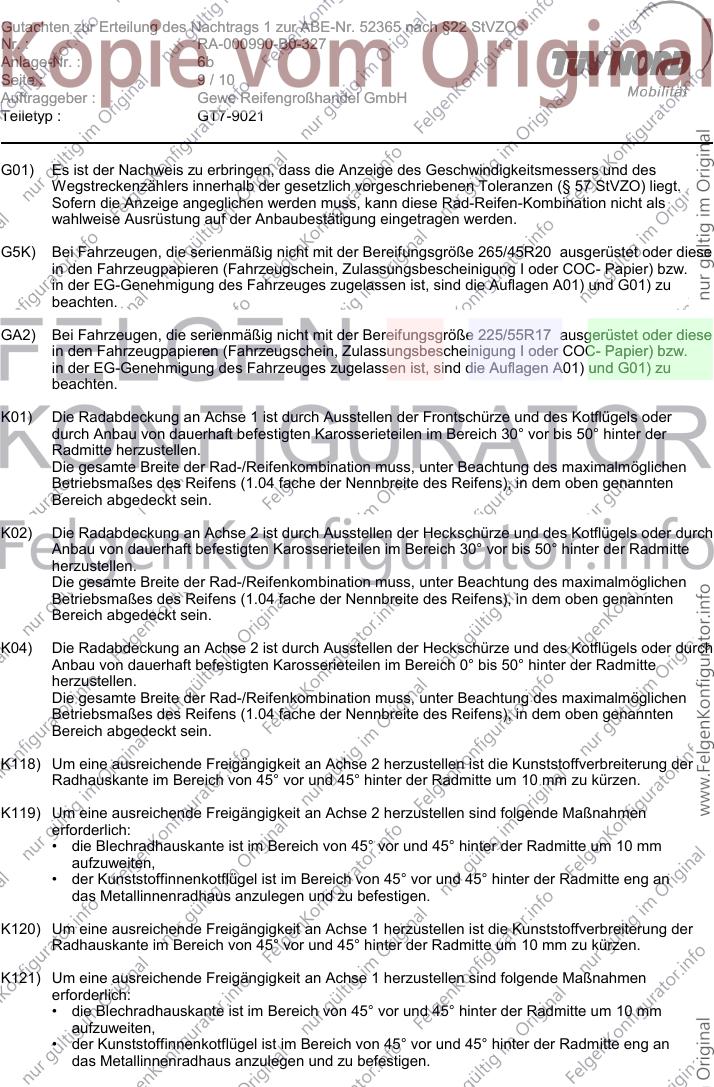 Gutachten zur Erteilung des Nachtrags 1 zur ABE-Nr. 52365 nach §22 StVZO
Nr. : RA-000990-B0-327
Anlage-Nr. : 6b
Seite : 9 / 10
Auftraggeber : Gewe Reifengroßhandel GmbH
Teiletyp : GT7-9021
Kopie vom Original
TÜV NORD
Mobilität
G01) Es ist der Nachweis zu erbringen, dass die Anzeige des Geschwindigkeitsmessers und des
Wegstreckenzählers innerhalb der gesetzlich vorgeschriebenen Toleranzen (§ 57 StVZO) liegt.
Sofern die Anzeige angeglichen werden muss, kann diese Rad-Reifen-Kombination nicht als
wahlweise Ausrüstung auf der Anbaubestätigung eingetragen werden.
G5K) Bei Fahrzeugen, die serienmäßig nicht mit der Bereifungsgröße 265/45R20 ausgerüstet oder diese
in den Fahrzeugpapieren (Fahrzeugschein, Zulassungsbescheinigung I oder COC- Papier) bzw.
in der EG-Genehmigung des Fahrzeuges zugelassen ist, sind die Auflagen A01) und G01) zu
beachten.
GA2) Bei Fahrzeugen, die serienmäßig nicht mit der Bereifungsgröße 225/55R17 ausgerüstet oder diese
in den Fahrzeugpapieren (Fahrzeugschein, Zulassungsbescheinigung I oder COC- Papier) bzw.
in der EG-Genehmigung des Fahrzeuges zugelassen ist, sind die Auflagen A01) und G01) zu
beachten.
FELGEN
KONFIGURATOR
K01) Die Radabdeckung an Achse 1 ist durch Ausstellen der Frontschürze und des Kotflügels oder
durch Anbau von dauerhaft befestigten Karosserieteilen im Bereich 30° vor bis 50° hinter der
Radmitte herzustellen.
Die gesamte Breite der Rad-/Reifenkombination muss, unter Beachtung des maximalmöglichen
Betriebsmaßes des Reifens (1.04 fache der Nennbreite des Reifens), in dem oben genannten
Bereich abgedeckt sein.
FelgenKonfigurator.info
K02) Die Radabdeckung an Achse 2 ist durch Ausstellen der Heckschürze und des Kotflügels oder durch
Anbau von dauerhaft befestigten Karosserieteilen im Bereich 30° vor bis 50° hinter der Radmitte
herzustellen.
Die gesamte Breite der Rad-/Reifenkombination muss, unter Beachtung des maximalmöglichen
Betriebsmaßes des Reifens (1.04 fache der Nennbreite des Reifens), in dem oben genannten
Bereich abgedeckt sein.
K04) Die Radabdeckung an Achse 2 ist durch Ausstellen der Heckschürze und des Kotflügels oder durch
Anbau von dauerhaft befestigten Karosserieteilen im Bereich 0° bis 50° hinter der Radmitte
herzustellen.
Die gesamte Breite der Rad-/Reifenkombination muss, unter Beachtung des maximalmöglichen
Betriebsmaßes des Reifens (1.04 fache der Nennbreite des Reifens), in dem oben genannten
Bereich abgedeckt sein.
K118) Um eine ausreichende Freigängigkeit an Achse 2 herzustellen ist die Kunststoffverbreiterung der
Radhauskante im Bereich von 45° vor und 45° hinter der Radmitte um 10 mm zu kürzen.
K119) Um eine ausreichende Freigängigkeit an Achse 2 herzustellen sind folgende Maßnahmen
erforderlich:
• die Blechradhauskante ist im Bereich von 45° vor und 45° hinter der Radmitte um 10 mm
aufzuweiten,
• der Kunststoffinnenkotflügel ist im Bereich von 45° vor und 45° hinter der Radmitte eng an
das Metallinnenradhaus anzulegen und zu befestigen.
K120) Um eine ausreichende Freigängigkeit an Achse 1 herzustellen ist die Kunststoffverbreiterung der
Radhauskante im Bereich von 45° vor und 45° hinter der Radmitte um 10 mm zu kürzen.
K121) Um eine ausreichende Freigängigkeit an Achse 1 herzustellen sind folgende Maßnahmen
erforderlich:
• die Blechradhauskante ist im Bereich von 45° vor und 45° hinter der Radmitte um 10 mm
aufzuweiten,
• der Kunststoffinnenkotflügel ist im Bereich von 45° vor und 45° hinter der Radmitte eng an
das Metallinnenradhaus anzulegen und zu befestigen.
nur gültig im Original
www.FelgenKonfigurator.info
Original